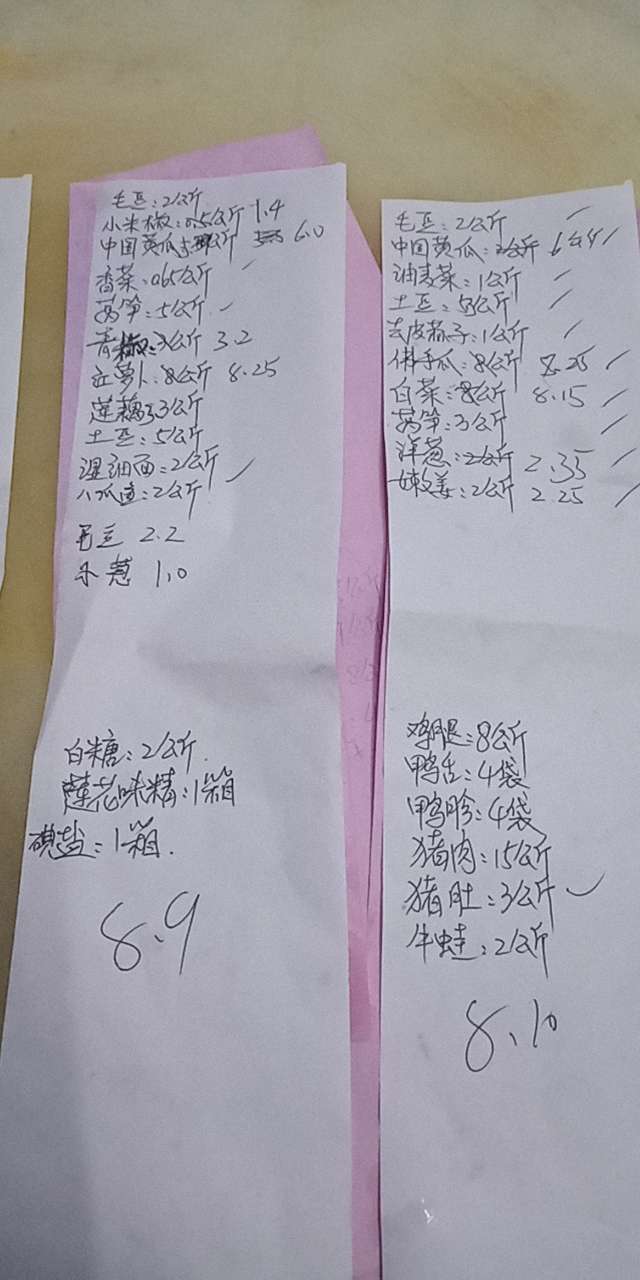 毛豆:2公斤
小米椒:0.5公斤 1.4
中国黄瓜:公斤 6.0
香菜:0.65公斤
莴笋:5公斤
青椒:3公斤 3.2
红萝卜:8公斤 8.25
莲藕:3公斤
土豆:5公斤
湿细面:2公斤
八爪鱼:2公斤
毛豆 2.2
小葱 1.0
白糖:2公斤.
莲花味精:1箱
碘盐:1箱.
8.9
毛豆:2公斤
中国黄瓜:公斤
油麦菜:1公斤
土豆:5公斤
去皮蒜子:1公斤
佛手瓜:8公斤 8.25
白菜:8公斤 8.15
莴笋:3公斤
洋葱:2公斤 2.35
嫩姜:2公斤 2.25
鸡腿:8公斤
鸭舌:4袋
鸭胗:4袋
猪肉:15公斤
猪肚:3公斤
牛蛙:2公斤
8.10